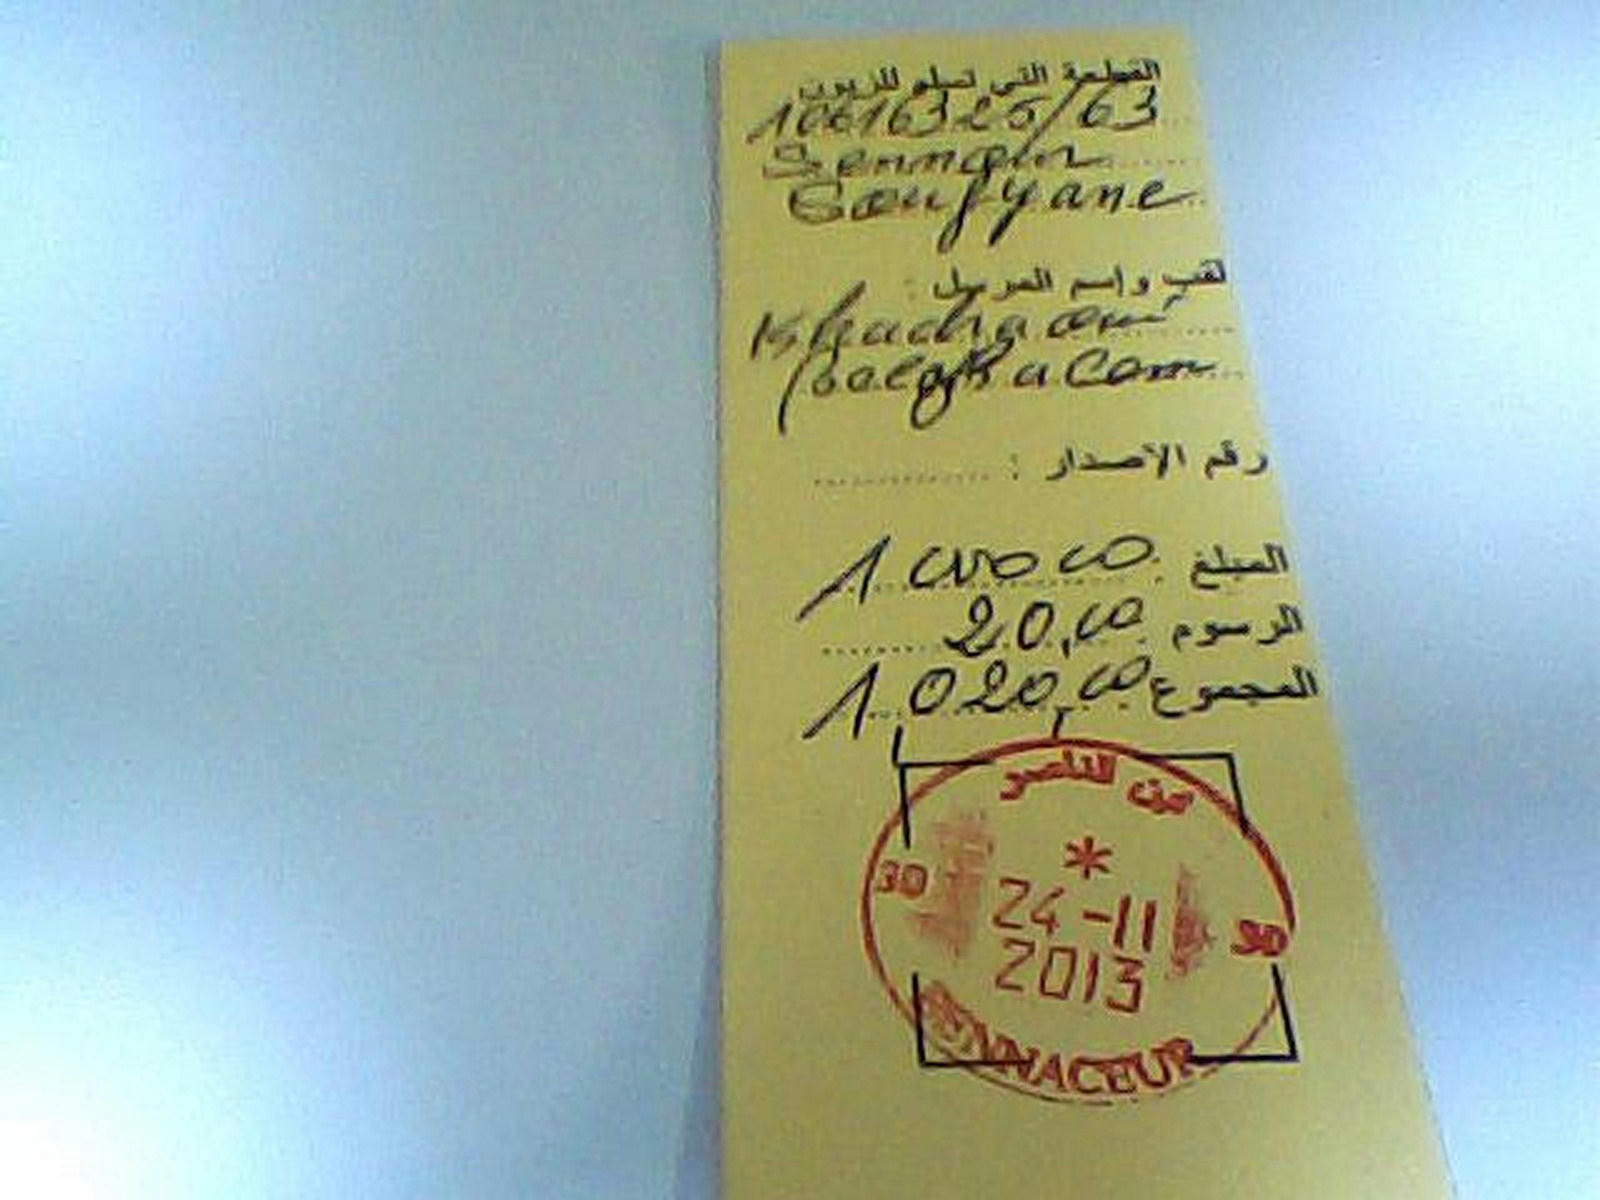 القطعة التي تسلم للزبون
10616325/63
Sennaoui
Soufyane
لقب وإسم المرسل :
belgacem
رقم الإصدار :
المبلغ 1000,00
الرسوم 20,00
المجموع 1020,00
عين الناصر
*
30 24-11 30
2013
ENNACEUR